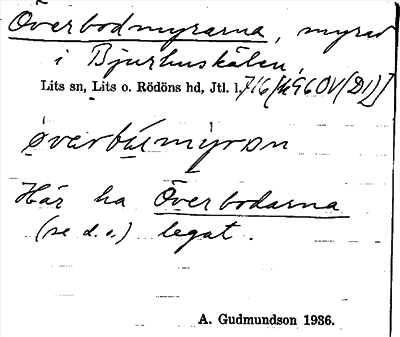 Överbodmyrarna, myrar
i Bjurhuskälen,
Lits sn, Lits o. Rödöns hd, Jtl. l.
øvarbúmỳrọn
Här ha Överbodarna
(se d.o.) legat.
A. Gudmundson 1936.